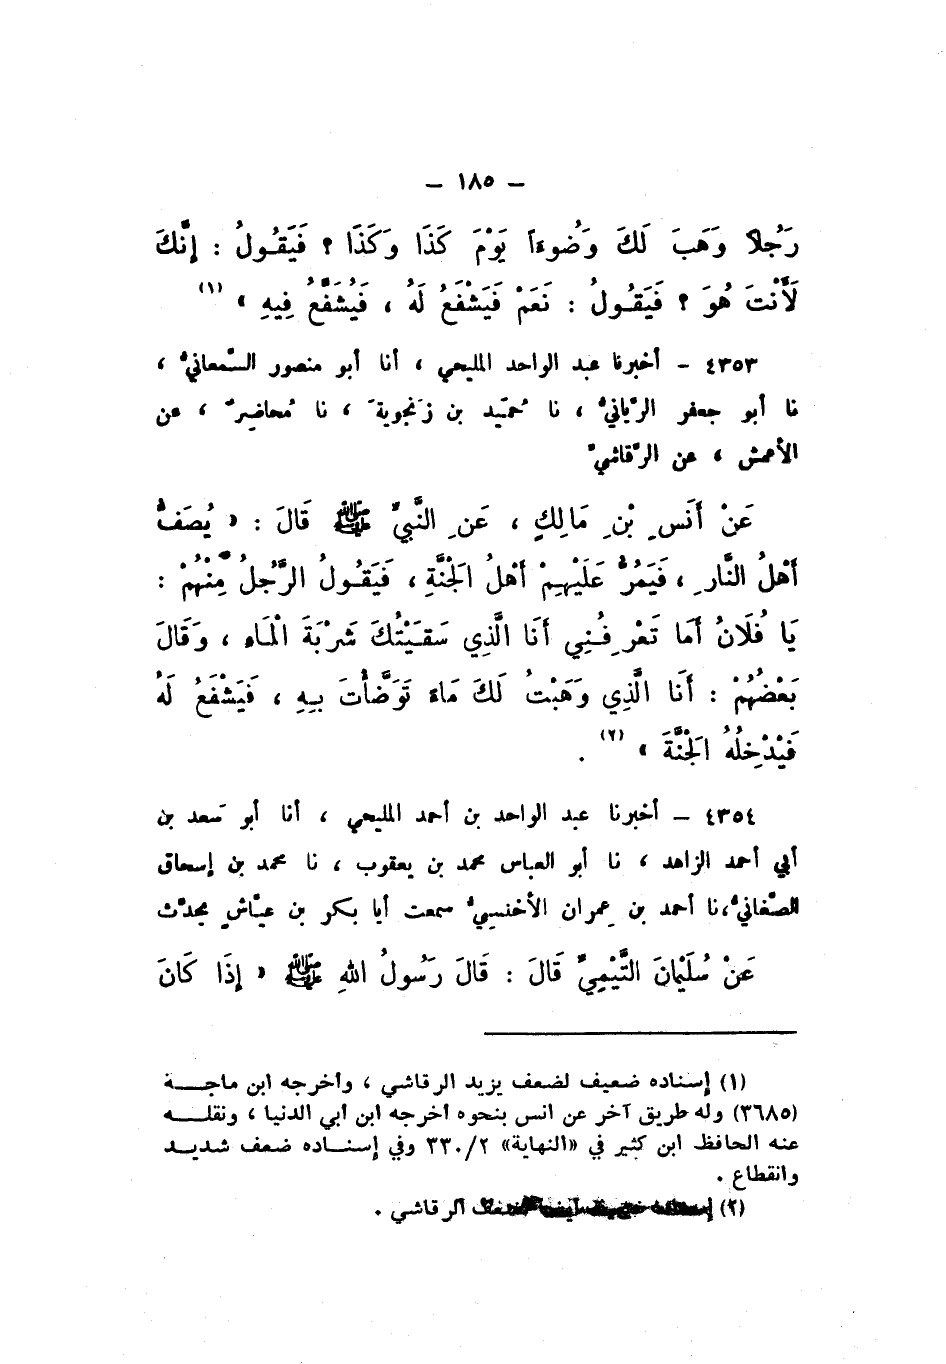 – ١٨٥ –
رَجُلاً وَهَبَ لَكَ وَضُوءَاً يَوْمَ كَذَا وَكَذَا ؟ فَيَقُولُ : إِنَّكَ
لَأَنْتَ هُوَ ؟ فَيَقُولُ : نَعَمْ فَيَشْفَعُ لَهُ ، فَيُشَفَّعُ فِيهِ » (١)
٤٣٥٣ – أخبرنا عبد الواحد المليحي ، أنا أبو منصور السَّمعانيُّ ،
نا أبو جعفر الرَّيانيُّ ، نا حُمَيد بن زَنجوية َ ، نا مُحاضِرٌ ، عن
الأعمش ، عن الرَّقاشيِّ
عَنْ أَنَسِ بْنِ مَالِكٍ ، عَنِ النَّبِيِّ ﷺ قَالَ : « يُصَفُّ
أَهْلُ النَّارِ ، فَيَمُرُّ عَلَيْهِمْ أَهْلُ الْجَنَّةِ ، فَيَقُولُ الرَّجُلُ مِّنْهُمْ :
يَا فُلَانُ أَمَا تَعْرِفُنِي أَنَا الَّذِي سَقَيْتُكَ شَرْبَةَ الْمَاءِ ، وَقَالَ
بَعْضُهُمْ : أَنَا الَّذِي وَهَبْتُ لَكَ مَاءً تَوَضَّأْتَ بِهِ ، فَيَشْفَعُ لَهُ
فَيُدْخِلُهُ الْجَنَّةَ » (٢) .
٤٣٥٤ – أخبرنا عبد الواحد بن أحمد المليحي ، أنا أبو سَعد بن
أبي أحمد الزاهد ، نا أبو العباس محمد بن يعقوب ، نا محمد بن إسحاق
الصَّغانيُّ ،نا أحمد بن عِمران الأخنسيُّ سمعت أبا بكر بن عيَّاشٍ يحدِّث
عَنْ سُلَيْمَانَ التَّيْمِيِّ قَالَ : قَالَ رَسُولُ اللهِ ﷺ « إِذَا كَانَ
(١) إسناده ضعيف لضعف يزيد الرقاشي ، وأخرجه ابن ماجـــة
(٣٦٨٥) وله طريق آخر عن انس بنحوه اخرجه ابن ابي الدنيا ، ونقلـــه
عنه الحافظ ابن كثير في «النهاية» ٣٣٠/٢ وفي إسنـــاده ضعف شديـــد
وانقطاع .
(٢) الرقاشي .